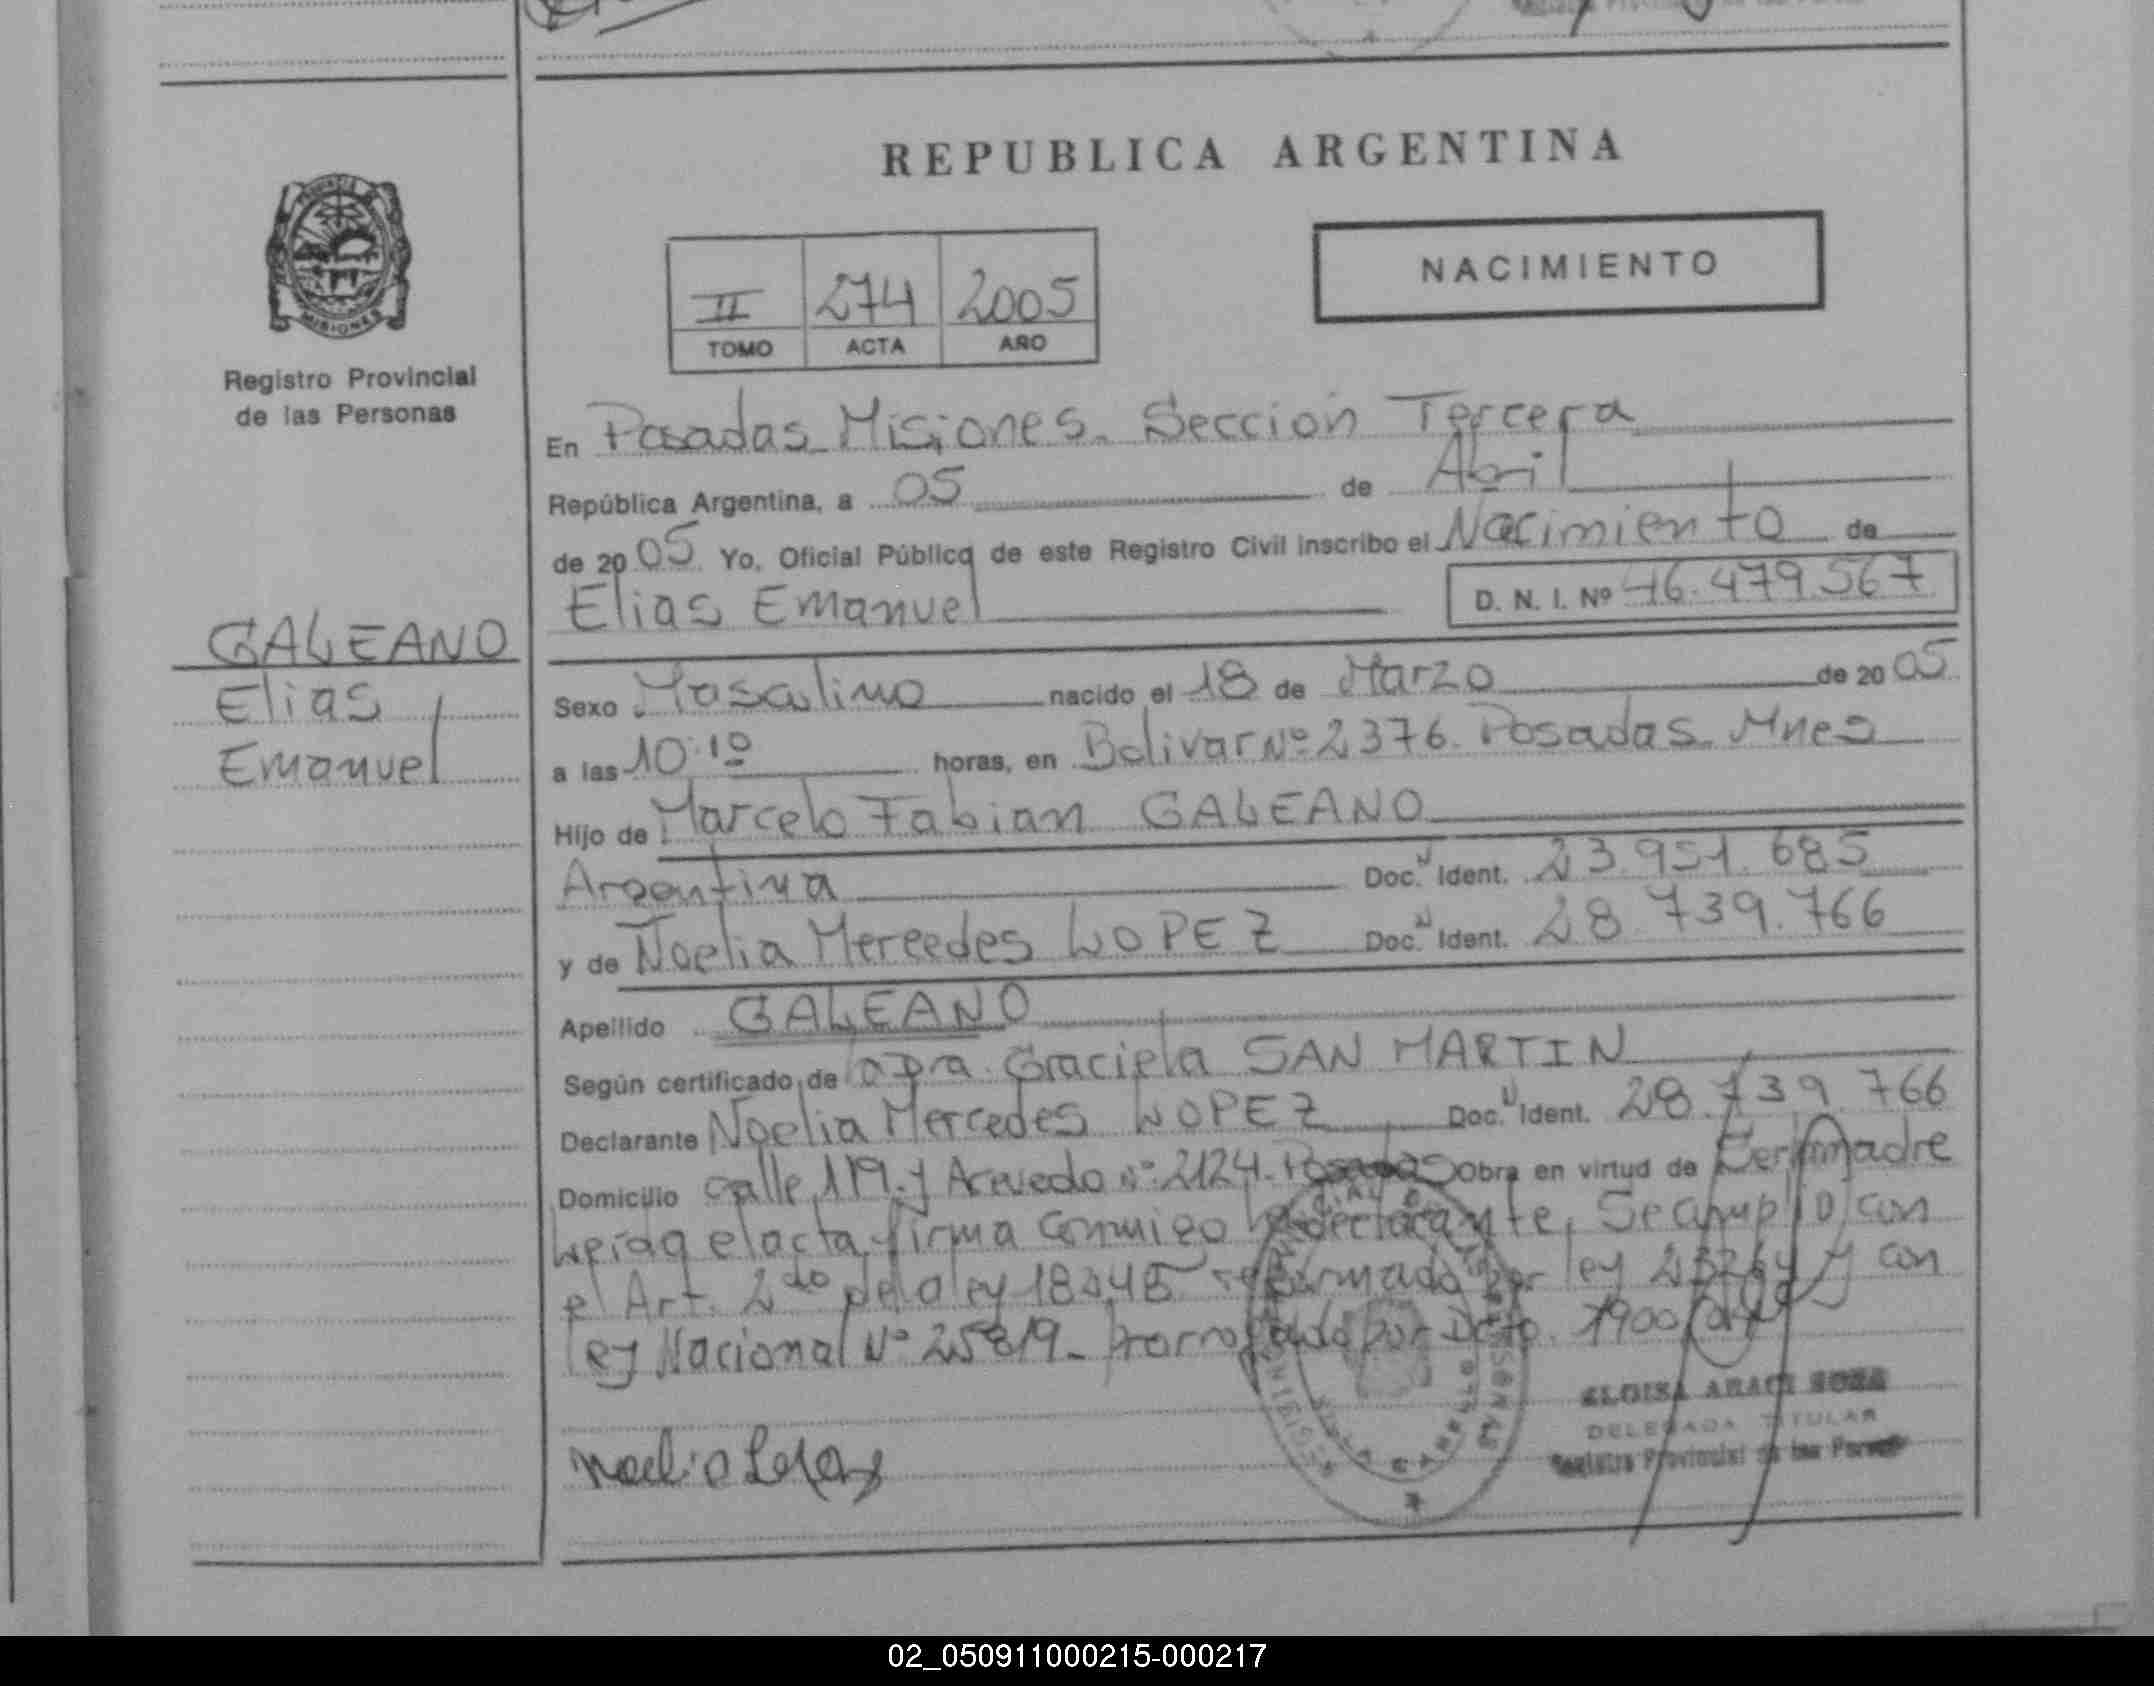 REPUBLICA ARGENTINA
NACIMIENTO
II 274 2005
TOMO ACTA AÑO
MISIONES
Registro Provincial
de las Personas
GALEANO
Elias
Emanuel
En Posadas Misiones. Sección Tercera
República Argentina, a 05 de Abril
de 2005 Yo, Oficial Público de este Registro Civil inscribo el Nacimiento de
Elias Emanuel D. N. I. Nº 46.479.567
Sexo Masculino nacido el 18 de Marzo de 2005
a las 10:10 horas, en Bolivar Nº 2376. Posadas. Mnes
Hijo de Marcelo Fabian GALEANO
Argentina Doc. N Ident. 23.951.685
y de Noelia Mercedes LOPEZ Doc. N Ident. 28.739.766
Apellido GALEANO
Según certificado de la Dra. Graciela SAN MARTIN
Declarante Noelia Mercedes LOPEZ Doc. N Ident. 28.739.766
Domicilio calle 119 y Acevedo nº 2124. Posadas Obra en virtud de Ser madre
Leida el acta firma conmigo la declarante, Se cumplio con
el Art. 2do de la ley 18248 reformado por ley 23264 y con
ley Nacional Nº 25819- prorrogado por Dcto. 1900/04
DELEGADA TITULAR
Registro Provincial de las Personas
Noelia Lopez
02_050911000215-000217